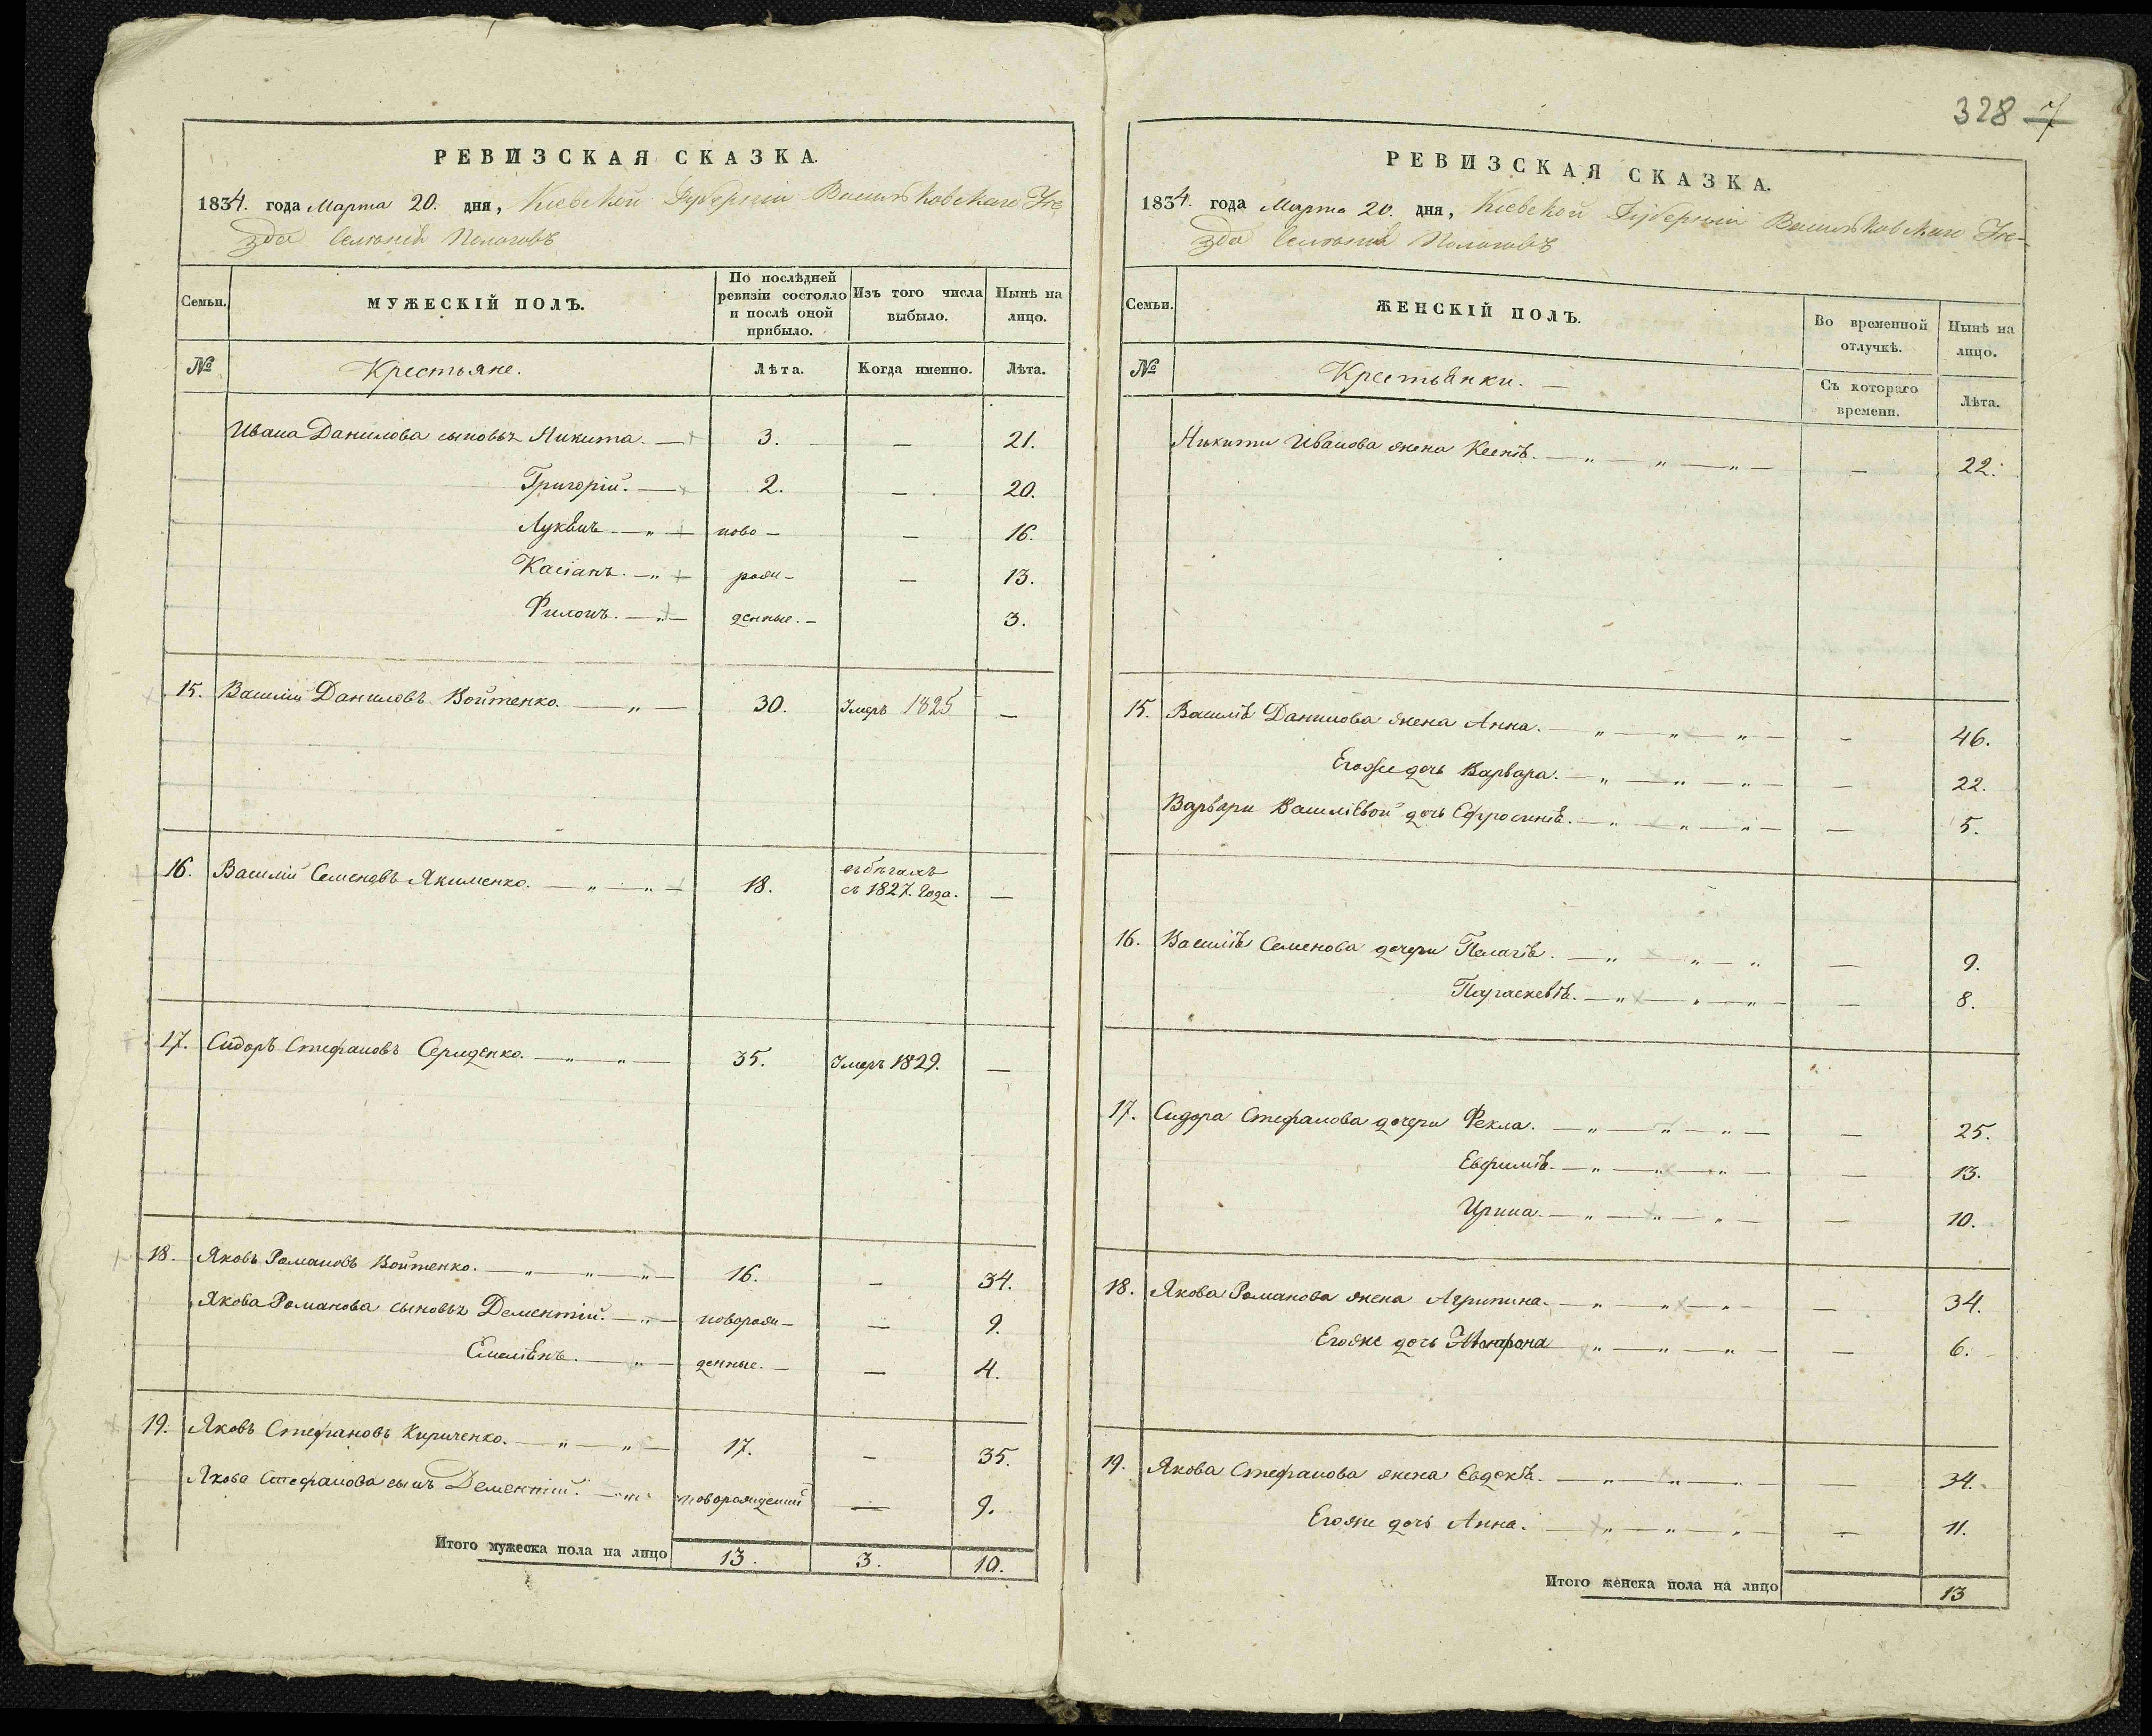 328 7
РЕВИЗСКАЯ СКАЗКА.
1834. года Марта 20. дня, Кіевской Губерніи Васильковскаго Уе
зда Селенія Пологовъ
Семьи.
МУЖЕСКІЙ ПОЛЪ.
По послѣдней ревизіи состояло и послѣ оной прибыло.
Изъ того числа выбыло.
Нынѣ на лицо.
№
Крестьяне.
Лѣта.
Когда именно.
Лѣта.
Ивана Данилова сыновья Никита. — 3. — 21.
Григорій. — 2. — 20.
Лукьянъ — „ — ново — — 16.
Касіанъ. — „ рож — — 13.
Филонъ. — „ — денные. — 3.
15. Василій Даниловъ Войтенко. — „ — 30. Умеръ 1825 —
16. Василій Семеновъ Якименко. — „ — „ — 18. въ бѣгахъ
съ 1827. Года. —
17. Сидоръ Стефановъ Середенко. — „ — „ — 35. Умеръ 1829. —
18. Яковъ Романовъ Войтенко. — „ — „ — „ — 16. — 34.
Якова Романова сыновья Дементій. — „ — новорож — — 9.
Емеліянъ. — „ — денные. — — 4.
19. Яковъ Стефановъ Кириченко. — „ — „ — 17. — 35.
Якова Стефанова сынъ Дементій. — „ новорожденый — 9.
Итого мужеска пола на лицо 13. 3. 10.
РЕВИЗСКАЯ СКАЗКА.
1834. года Марта 20. дня, Кіевской Губерніи Васильковскаго Уе-
зда Селенія Пологовъ
Семьи.
ЖЕНСКІЙ ПОЛЪ.
Во временной отлучкѣ.
Нынѣ на лицо.
№
Крестьянки. —
Съ котораго времени.
Лѣта.
Никиты Иванова жена Ксенія. — „ — „ — „ — — 22.
15. Василія Данилова жена Анна. — „ — „ — „ — — 46.
Егоже дочь Варвара. — „ — „ — „ — — 22.
Варвары Василіевой дочь Ефросинія. — „ — „ — „ — — 5.
16. Василія Семенова дочери Пелагія. — „ — „ — „ — 9.
Параскевія. — „ — „ — „ — — 8.
17. Сидора Стефанова дочери Фекла. — „ — „ — „ — — 25.
Евфимія. — „ — „ — „ — — 13.
Ирина. — „ — „ — „ — — 10.
18. Якова Романова жена Агрипина. — „ — „ — „ — — 34.
Егоже дочь — „ — „ — „ — — 6.
19. Якова Стефанова жена Евдокія. — „ — „ — „ — — 34.
Егоже дочь Анна. — „ — „ — „ — — 11.
Итого женска пола на лицо 13